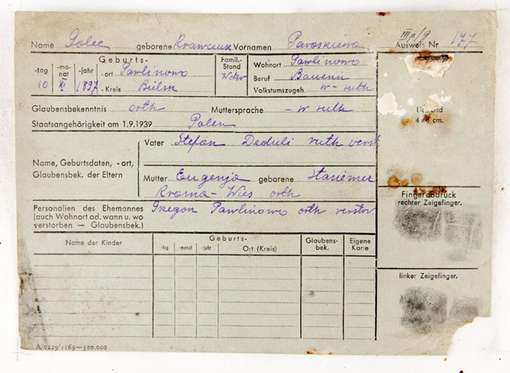 Name Golec geborene Krawczuk Vornamen Paraskiewa
Ausweis Nr 177
Geburts-
-tag -mo-nat -jahr -ort Pawlinowo
10 XI 1897 -Kreis Bielsk
Famil.-Stand
Wohnort Pawlinowo
Beruf Bäuerin
Volkstumszugeh. w-ruth
Glaubensbekenntnis orth Muttersprache w-ruth
Staatsangehörigkeit am 1.9.1939 Polen
Lichtbild
4×4 cm.
Name, Geburtsdaten, -ort,
Glaubensbek. der Eltern
Vater Stefan ruth verst
Mutter Eugenja geborene
orth
Personalien des Ehemannes
(auch Wohnort ad. wann u. wo
verstorben — Glaubensbek.)
Pawlinowo orth verstor
Fingerabdruck
rechter Zeigefinger.
Name der Kinder
Geburts-
-tag -monat -jahr Ort (Kreis)
Glaubens-
bek.
Eigene
Karte
linker Zeigefinger.